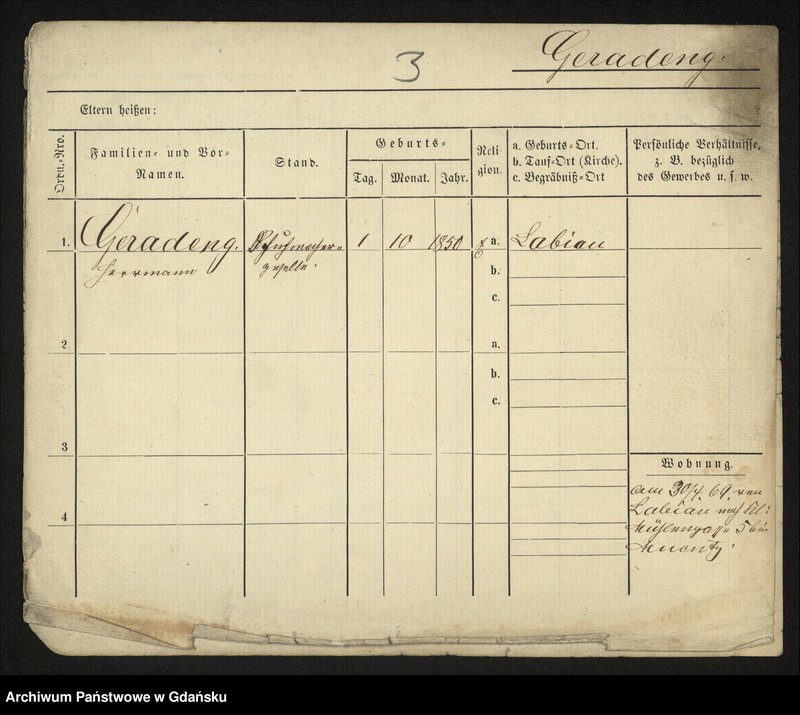 3
Geradeng.
Eltern heißen:
Ordn.-Nro.
Familien- und Vor-
Namen.
Stand.
Geburts-
Tag.
Monat.
Jahr.
Reli
gion.
a. Geburts-Ort.
b. Tauf-Ort (Kirche).
c. Begräbniß-Ort
Persönliche Verhältnisse,
z. B. bezüglich
des Gewerbes u. s. w.
1.
Geradeng.
Herrmann
Schuhmacher-
geselle.
1
10
1850
a.
Labiau
b.
c.
2
a.
b.
c.
3
4
Wohnung.
am 30/4. 69. von
Labiau nach
Mühlengasse 5 bei
Archiwum Państwowe w Gdańsku